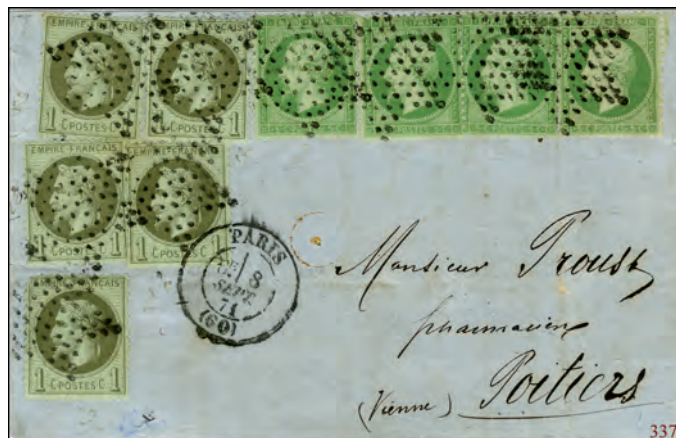 EMPIRE FRANÇAIS
1 C POSTES C 1
C POSTES C 1
EMPIRE FRANÇAIS
1 C POSTES C 1
EMPIRE FRANÇAIS
1 C POSTES C 1
1 C POSTES C 1
PARIS
8
SEPT
71
(60)
Monsieur Proust
pharmacien
(Vienne) Poitiers
337